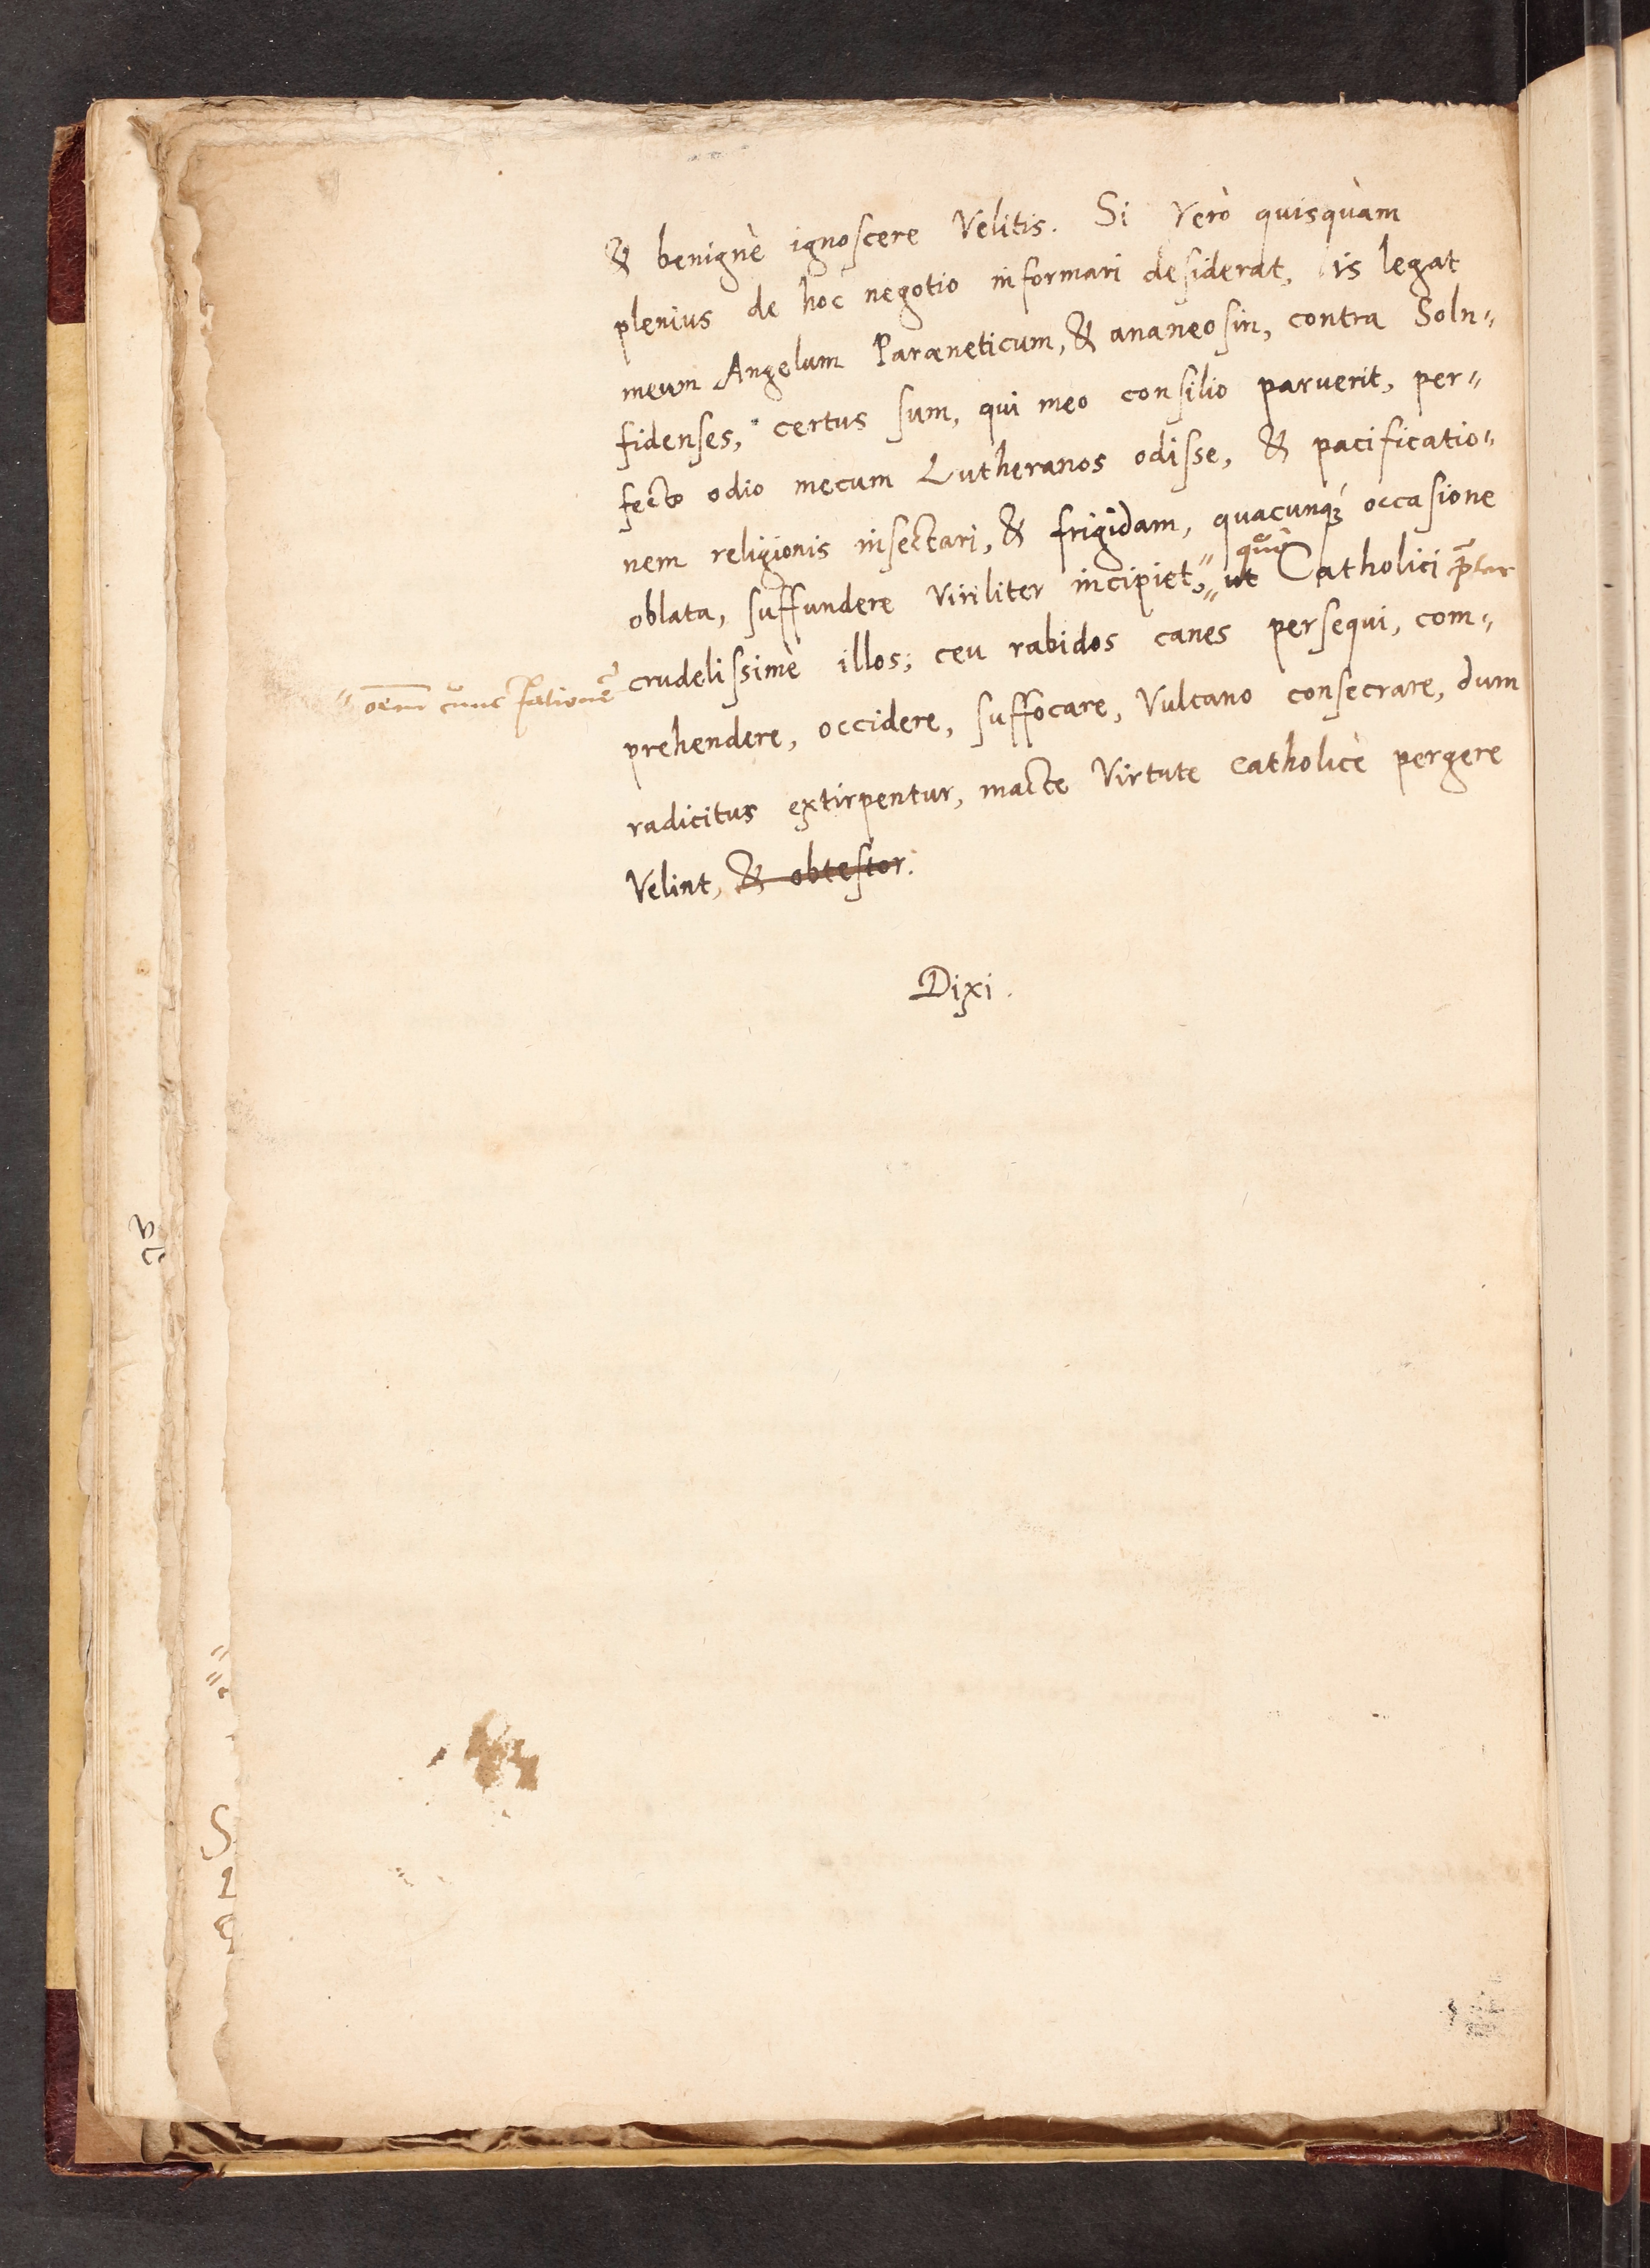 & benignè ignoscere Velitis. Si Verò quisquàm
plenius de hoc negotio informari desiderat, is legat
meum Angelum Paræneticum, & ananeosin, contra Soln〃
fidenses, certus sum, qui meo consilio paruerit, per〃
fecto odio mecum Lutheranos odisse, & pacificatio〃
nem religionis insectari, & frigidam, quacunq́ꝫ occasione
oblata, suffundere Viriliter incipiet,〃 ut Catholici
crudelissimè illos, ceu rabidos canes persequi, com〃
prehendere, occidere, suffocare, Vulcano consecrare, dum
radicitus extirpentur, macte Virtute catholicè pergere
Velint, & obtestor.
Dixi.